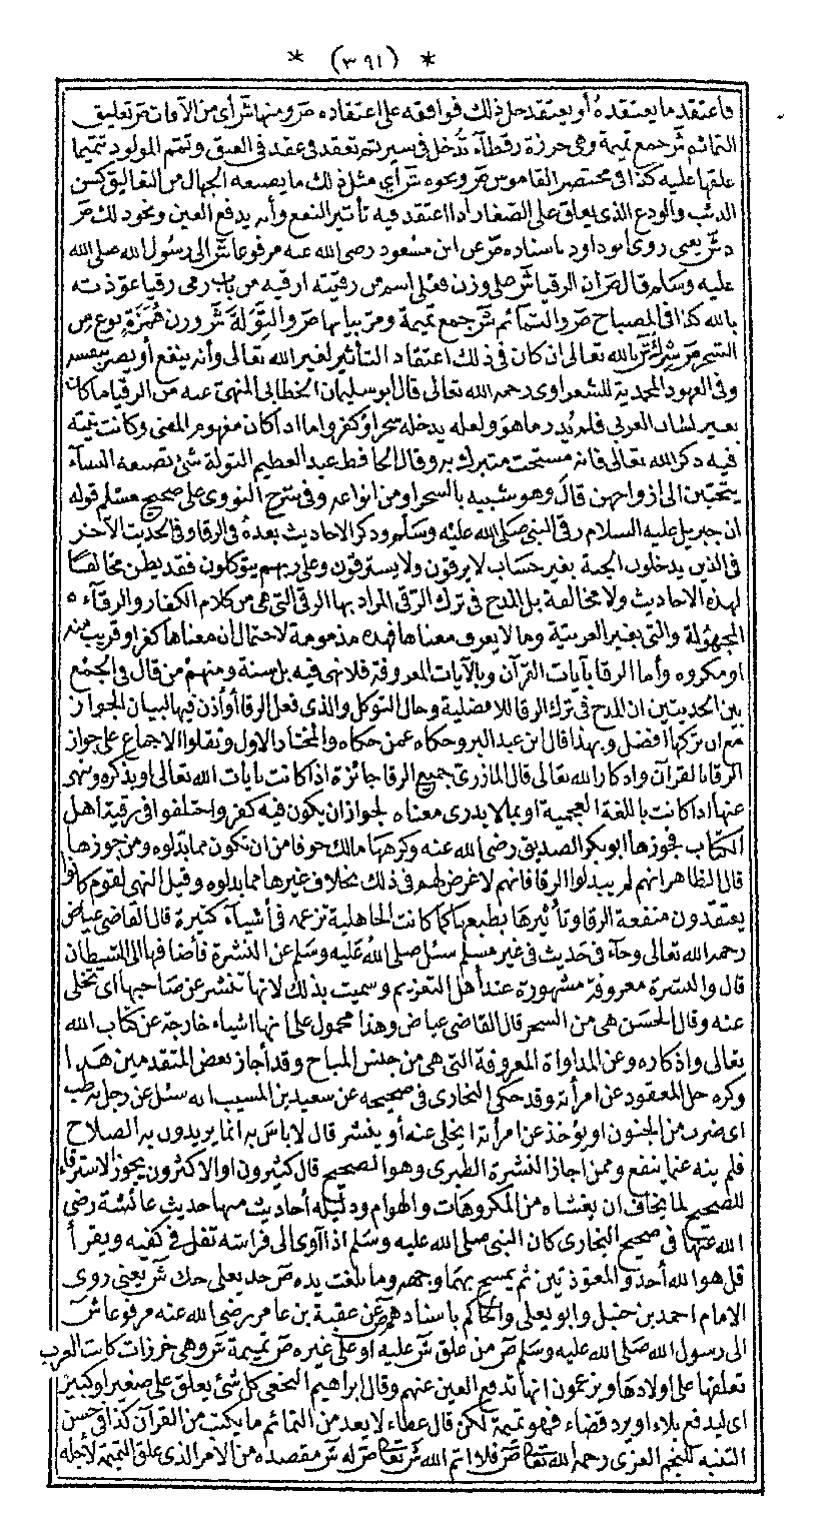 * (٣٩١) *
فاعتقد ما يعتقده أو يعتقد حل ذلك فوافقه على اعتقاده ص ومنها ش أى من الآفات ص تعليق
التمائم ش جمع تميمة وهى خرزة رقطاء تدخل فى سير ثم تعقد فى عقد فى العنق وتمم المولود تتميما
علقها عليه كذا فى مختصر القاموس ص ونحوه ش أي مثل ذلك ما يصنعه الجهال من التعاليق كسن
الذئب والودع الذى يعلق على الصغار اذا اعتقد فيه تأثير النفع وأنه يدفع العين ونحو ذلك ص
د ش يعنى روى ابو داود باسناده ص عن ابن مسعود رضى الله عنه مرفوعا ش الى رسول الله صلى الله
عليه وسلم قال ص ان الرقيا ش على وزن فعلى اسم من رقيته ارقيه من باب رمى رقيا عوذته
بالله كذا فى المصباح ص والتمائم ش جمع تميمة ومر بيانها ص والتولة ش وزن همزة نوع من
السحر ص شرك ش بالله تعالى ان كان فى ذلك اعتقاد التأثير لغير الله تعالى وأنه ينفع أو يضر بنفسه
وفى العهود المحمدية للشعراوى رحمه الله تعالى قال ابو سليمان الخطابى المنهى عنه من الرقيا ما كان
بغير لسان العربى فلم يدر ما هو ولعله يدخله سحر أو كفر واما اذا كان مفهوم المعنى وكانت نيته
فيه ذكر الله تعالى فانه مستحب متبرك به وقال الحافظ عبد العظيم التولة شئ تصنعه النساء
يتحببن الى ازواجهن قال وهو شبيه بالسحر او من انواعه وفى شرح النووى على صحيح مسلم قوله
ان جبريل عليه السلام رقى النبى صلى الله عليه وسلم وذكر الاحاديث بعده فى الرقا وفى الحديث الآخر
فى الذين يدخلون الجنة بغير حساب لا يرقون ولا يسترقون وعلى ربهم يتوكلون فقد يظن مخالفا
لهذه الاحاديث ولا مخالفة بل المدح فى ترك الرقى المراد بها الرقى التى هى من كلام الكفار والرقاء
المجهولة والتى بغير العربية وما لا يعرف معناها فهذه مذمومة لاحتمال ان معناها كفر او قريب منه
او مكروه وأما الرقا بآيات القرآن وبالآيات المعروفة فلا نهى فيه بل سنة ومنهم من قال فى الجمع
بين الحديثين ان المدح فى ترك الرقا للافضلية وحال التوكل والذى فعل الرقا أو أذن فيها لبيان الجواز
مع ان تركها أفضل وبهذا قال ابن عبد البر وحكاه عمن حكاه والمختار الاول ونقلوا الاجماع على جواز
الرقا بالقرآن واذكار الله تعالى قال المازرى جميع الرقا جائزة اذا كانت بايات الله تعالى او بذكره ونهى
عنها اذا كانت باللغة العجمية او بما لا يدرى معناه لجواز ان يكون فيه كفر واختلفوا فى رقية أهل
الكتاب فجوزها ابو بكر الصديق رضى الله عنه وكرهها مالك خوفا من ان تكون مما بدلوه ومن جوزها
قال الظاهر انهم لم يبدلوا الرقا فانهم لا غرض لهم فى ذلك بخلاف غيرها مما بدلوه وقيل النهى لقوم كانوا
يعتقدون منفعة الرقا وتأثيرها بطبعها كما كانت الجاهلية تزعمه فى أشياء كثيرة قال القاضى عياض
رحمه الله تعالى وجاء فى حديث فى غير مسلم سئل صلى الله عليه وسلم عن النشرة فأضافها الى الشيطان
قال والنشرة معروفة مشهورة عند أهل التعزيم وسميت بذلك لانها تنشر عن صاحبها اى تخلى
عنه وقال الحسن هى من السحر قال القاضى عياض وهذا محمول على انها اشياء خارجة عن كتاب الله
تعالى واذكاره وعن المداواة المعروفة التى هى من جنس المباح وقد أجاز بعض المتقدمين هذا
وكره حل المعقود عن امرأته وقد حكى البخارى فى صحيحه عن سعيد بن المسيب انه سئل عن رجل به طب
اى ضرب من الجنون او يؤخذ عن امرأته ايخلى عنه أو ينشر قال لا باس به انما يريدون به الصلاح
فلم ينه عما ينفع وممن اجاز النشرة الطبرى وهو الصحيح قال كثيرون او الاكثرون يجوز الاسترقاء
للصحيح لما يخاف ان يغشاه من المكروهات والهوام ودليله أحاديث منها حديث عائشة رضى
الله عنها فى صحيح البخارى كان النبى صلى الله عليه وسلم اذا آوى الى فراشه تفل فى كفيه ويقرأ
قل هو الله أحد والمعوذتين ثم يمسح بهما وجهه وما بلغت يده ص حد يعلى حك ش يعنى روى
الامام احمد بن حنبل وابو يعلى والحاكم باسنادهم ص عن عقبة بن عامر رضى الله عنه مرفوعا ش
الى رسول الله صلى الله عليه وسلم ص من علق ش عليه او على غيره ص تميمة ش وهى خرزات كانت العرب
تعلقها على اولادها ويزعمون انها تدفع العين عنهم وقال ابراهيم النخعى كل شئ يعلق على صغير او كبير
اى ليدفع بلاء او يرد قضاء فهو تميمة لكن قال عطاء لا يعد من التمائم ما يكتب من القرآن كذا فى حسن
التنبه للنجم الغزى رحمه الله تعالى ص فلا اتم الله ش تعالى ص له ش مقصده من الأمر الذى علق التميمة لأجله